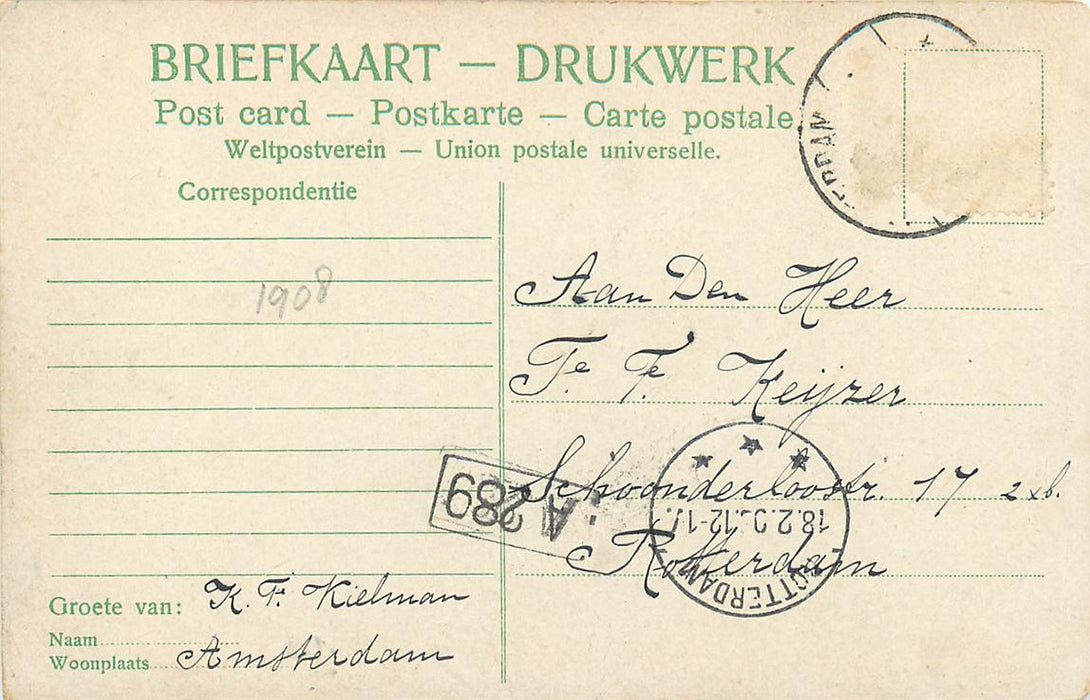 BRIEFKAART — DRUKWERK
Post card — Postkarte — Carte postale
Weltpostverein — Union postale universelle.
Correspondentie
1908
Aan Den Heer
F. F. Keijzer
Schoonderloostr. 17 2xb.
Rotterdam
A 289
18.2.0 .12-1
ROTTERDAM
ERDAM
Groete van: K. F. Kielman
Naam
Woonplaats Amsterdam